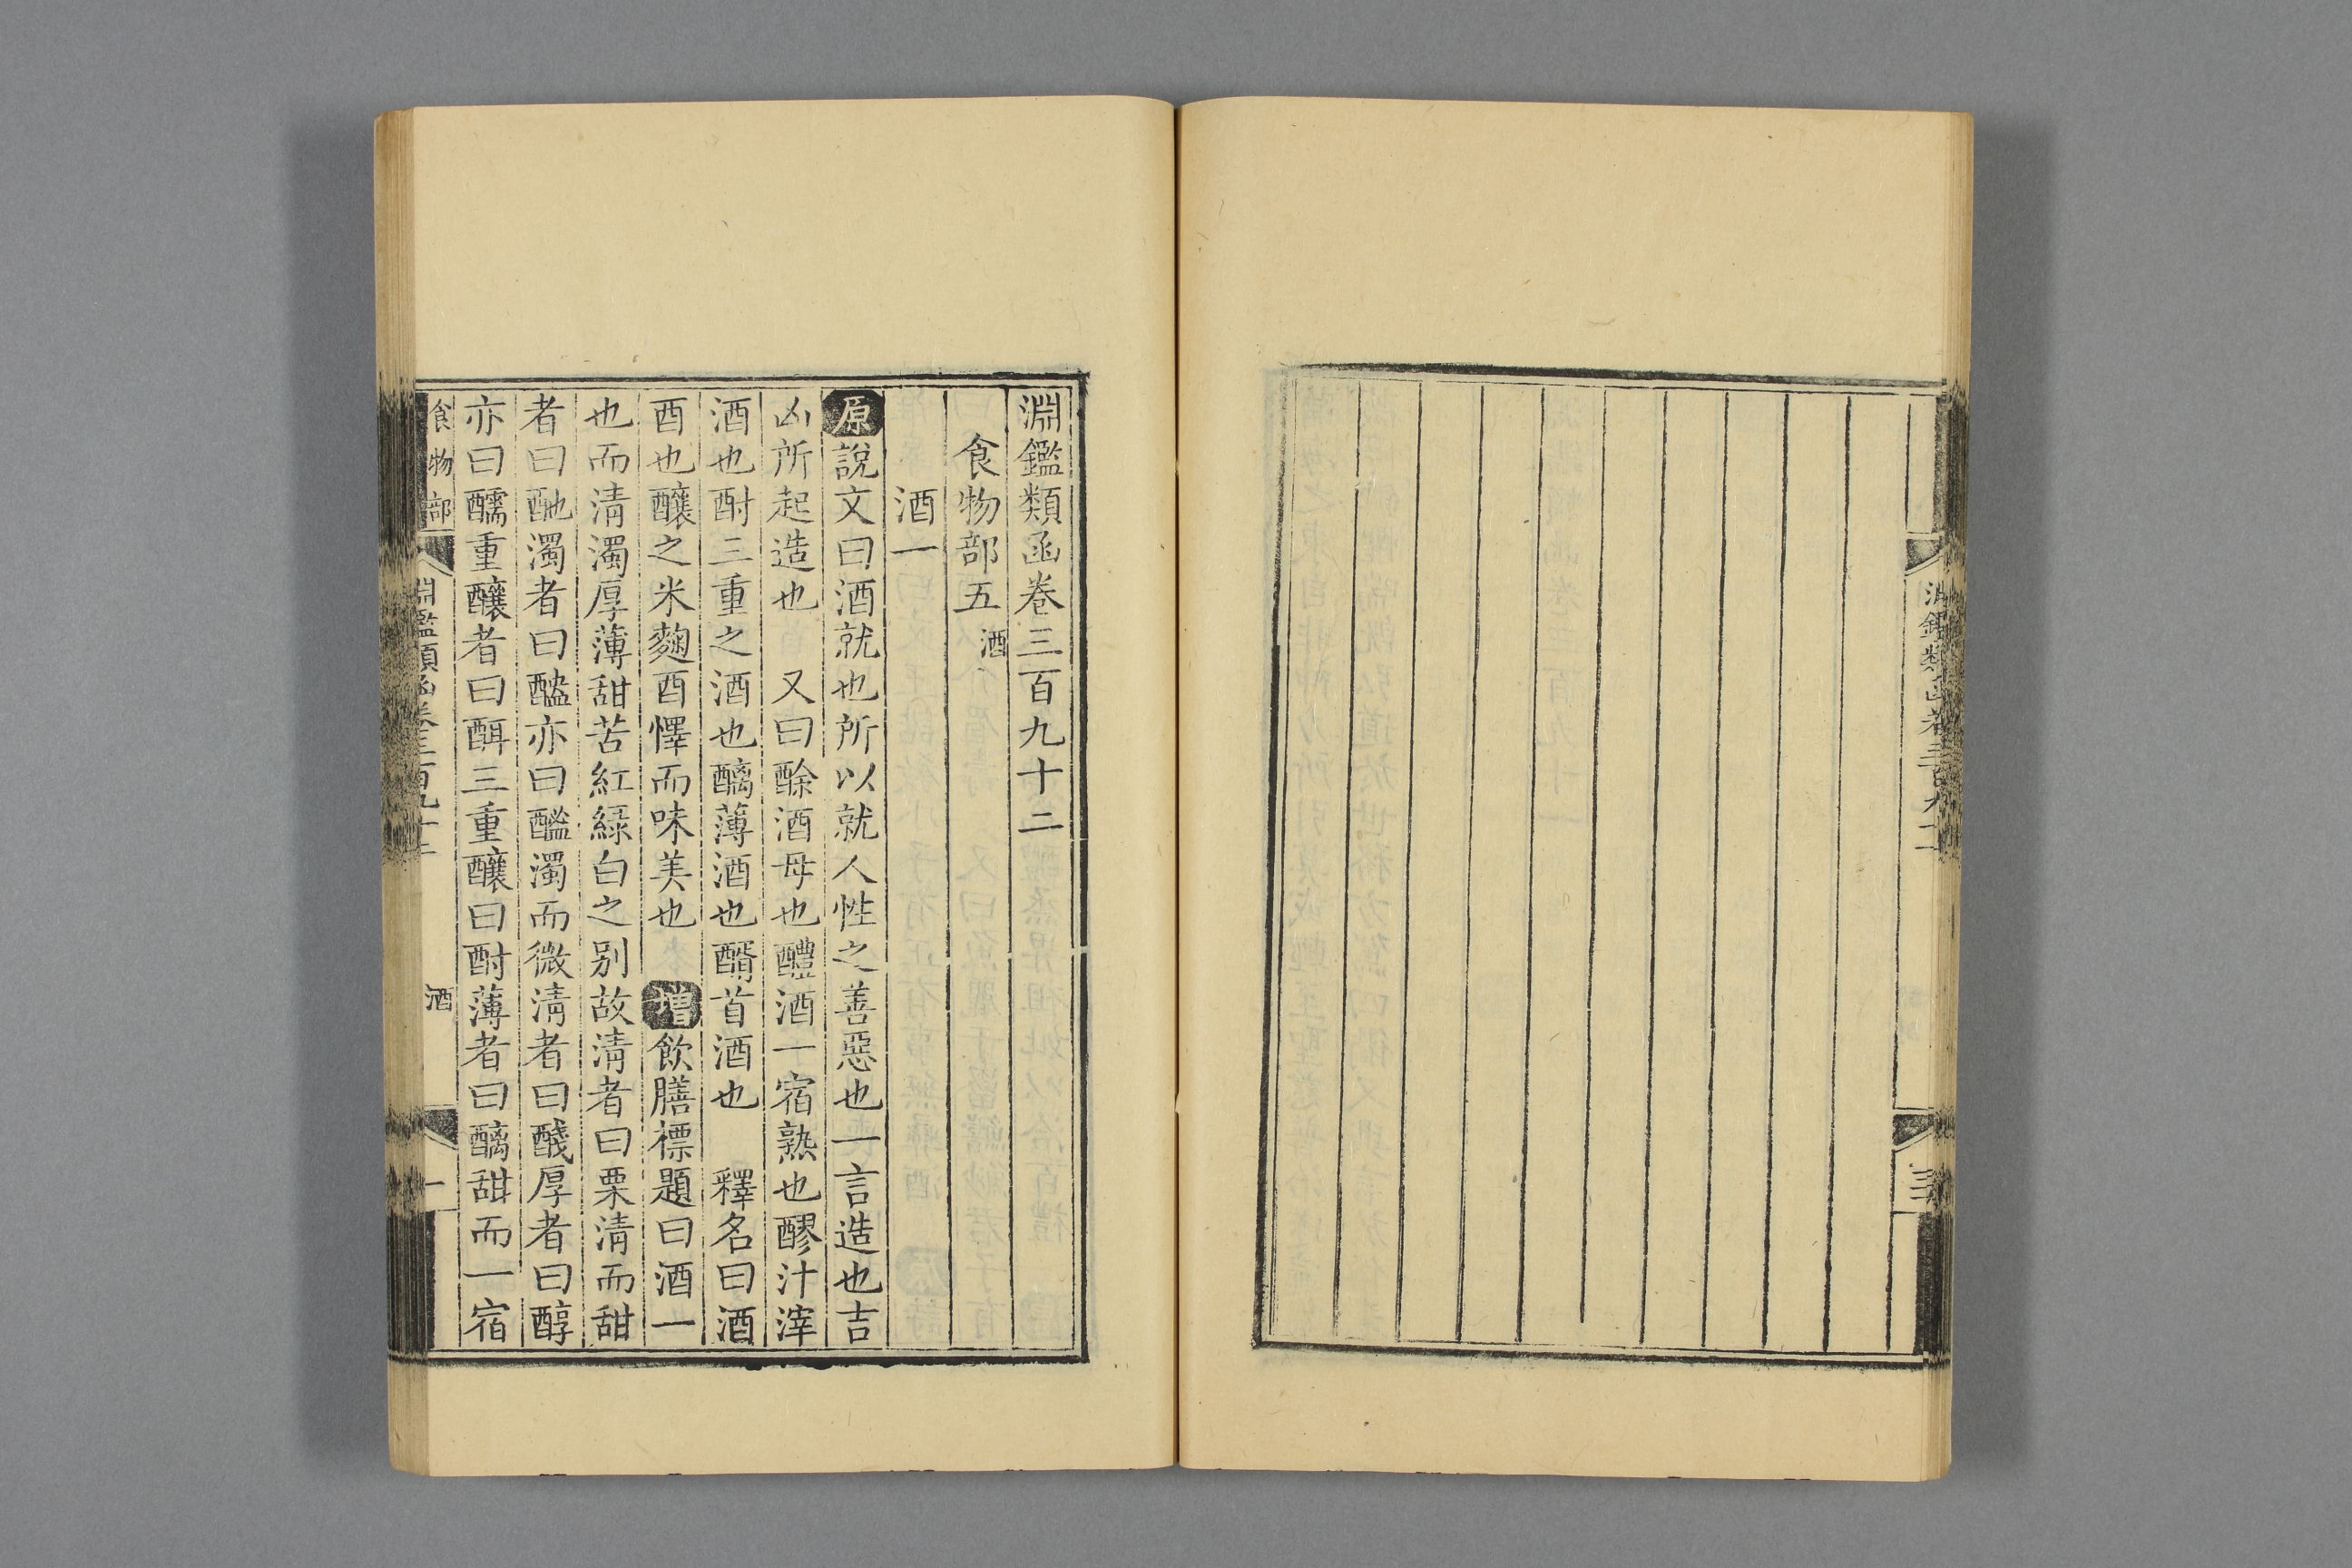 淵鑑類函卷三百九十二
食物部五 酒
酒一
原說文曰酒就也所以就人性之善惡也一言造也吉
凶所起造也 又曰酴酒母也醴酒一宿熟也醪汁滓
酒也酎三重之酒也醨薄酒也醑首酒也 釋名曰酒
酉也釀之米麴酉懌而味美也 增飲膳標題曰酒一
也而清濁厚薄甜苦紅綠白之别故清者曰栗清而甜
者曰酏濁者曰醠亦曰醢濁而微清者曰醆厚者曰醇
亦曰醹重釀者曰酮三重釀曰酎薄者曰醨甜而一宿
食物部 淵鑑類函卷三百九十二 酒 一